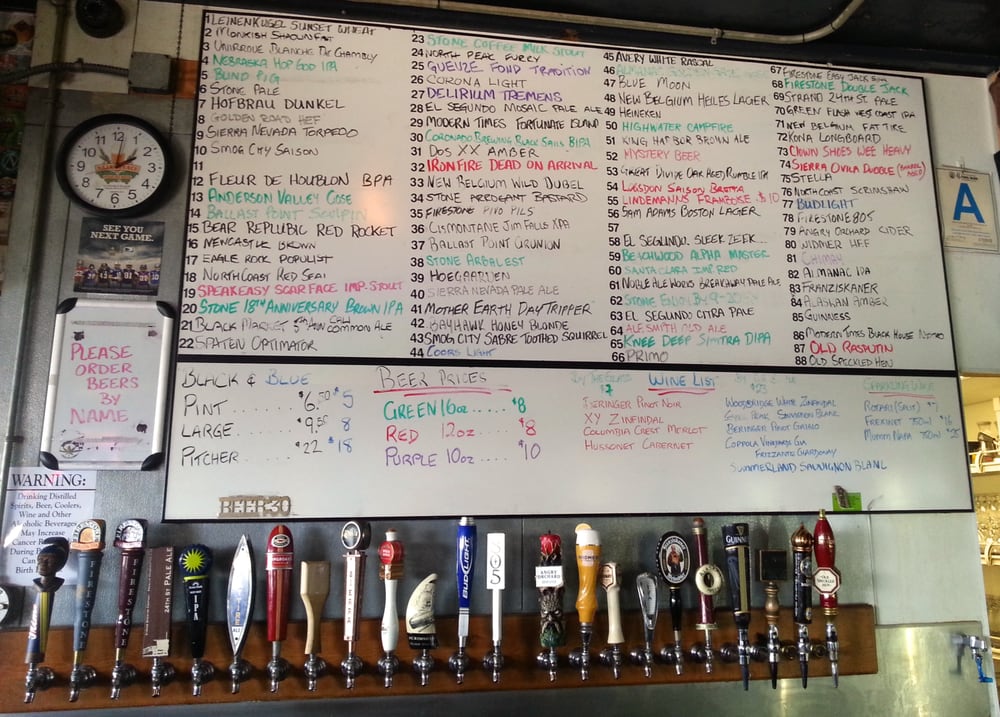 1 LEINENKUGEL SUNSET WHEAT
2 MONKISH
3 UNIBROUE BLANCHE DE CHAMBLY
4 NEBRASKA HOP GOD IPA
5 BLIND PIG
6 STONE PALE
7 HOFBRAU DUNKEL
8 GOLDEN ROAD HEF
9 SIERRA NEVADA TORPEDO
10 SMOG CITY SAISON
11
12 FLEUR DE HOUBLON BPA
13 ANDERSON VALLEY GOSE
14 BALLAST POINT SCULPIN
15 BEAR REPLUBIC RED ROCKET
16 NEWCASTLE BROWN
17 EAGLE ROCK POPULIST
18 NORTH COAST RED SEAL
19 SPEAKEASY SCARFACE IMP. STOUT
20 STONE 18TH ANNIVERSARY BROWN IPA
21 BLACK MARKET 5TH ANN CALI COMMON ALE
22 SPATEN OPTIMATOR
23 STONE COFFEE MILK STOUT
24 NORTH PEAK FURRY
25 GUEUZE FOND TRADITION
26 CORONA LIGHT
27 DELIRIUM TREMENS
28 EL SEGUNDO MOSAIC PALE ALE
29 MODERN TIMES FORTUNATE ISLAND
30 CORONADO BREWING BLACK SAILS BIPA
31 DOS XX AMBER
32 IRONFIRE DEAD ON ARRIVAL
33 NEW BELGIUM WILD DUBEL
34 STONE ARROGANT BASTARD
35 FIRESTONE PIVO PILS
36 CISMONTANE JIM FALLS XPA
37 BALLAST POINT GRUNION
38 STONE ARBALEST
39 HOEGAARDEN
40 SIERRA NEVADA PALE ALE
41 MOTHER EARTH DAY TRIPPER
42 BAYHAWK HONEY BLONDE
43 SMOG CITY SABRE TOOTHED SQUIRREL
44 COORS LIGHT
45 AVERY WHITE RASCAL
46 ALMANAC
47 BLUE MOON
48 NEW BELGIUM HELLES LAGER
49 HEINEKEN
50 HIGHWATER CAMPFIRE
51 KING HARBOR BROWN ALE
52 MYSTERY BEER
53 GREAT DIVIDE OAK AGED RUMBLE IPA
54 LOGSDON SAISON BRETTA
55 LINDEMANNS FRAMBOISE $10
56 SAM ADAMS BOSTON LAGER
57
58 EL SEGUNDO SLEEK ZEEK...
59 BEACHWOOD ALPHA MASTER
60 SANTA CLARA IMP. RED
61 NOBLE ALE WORKS BREAKAWAY PALE ALE
62 STONE ENJOY BY
63 EL SEGUNDO CITRA PALE
64 ALESMITH OLD ALE
65 KNEE DEEP SIMTRA DIPA
66 PRIMO
67 FIRESTONE EASY JACK
68 FIRESTONE DOUBLE JACK
69 STRAND 24TH ST. PALE
70 GREEN FLASH WEST COAST IPA
71 NEW BELGIUM FAT TIRE
72 KONA LONGBOARD
73 CLOWN SHOES WEE HEAVY
74 SIERRA OVILA DUBBLE (BARREL AGED)
75 STELLA
76 NORTH COAST SCRIMSHAW
77 BUDLIGHT
78 FIRESTONE 805
79 ANGRY ORCHARD CIDER
80 WIDMER HEF
81 CHIMAY
82 ALMANAC IPA
83 FRANZISKANER
84 ALASKAN AMBER
85 GUINNESS
86 MODERN TIMES BLACK HOUSE NITRO
87 OLD RASPUTIN
88 OLD SPECKLED HEN
BLACK & BLUE
PINT ....... $6.50 $5
LARGE ....... 9.50 8
PITCHER ....... $22 $18
BEER PRICES
GREEN 16oz .... $8
RED 12oz .... $8
PURPLE 10oz .... $10
BY THE GLASS
$7
WINE LIST
$23
BERINGER PINOT NOIR
XYZINFANDEL
COLUMBIA CREST MERLOT
HUSSONET CABERNET
WOODBRIDGE WHITE ZINFANDAL
PEAK SAUVIGNON BLANC
BERINGER PINOT GRIGIO
COPPOLA VINEYARDS GIA
FRIZZANTE CHARDONAY
SUMMERLAND SAUVIGNON BLANC
SPARKLING WINE
ROTARI (SPLIT) $7
FREXINET 750ml $16
MUMM NAPA 750ml $25
BEER:30
SEE YOU
NEXT GAME.
PLEASE
ORDER
BEERS
BY
NAME
WARNING:
Drinking Distilled
Spirits, Beer, Coolers,
Wine and Other
Alcoholic Beverages
May Increase
Cancer
During
Birth
A
FIRESTONE
FIRESTONE
24TH ST. PALE ALE
IPA
BUD LIGHT
805
ANGRY ORCHARD
WIDMER
GUINNESS